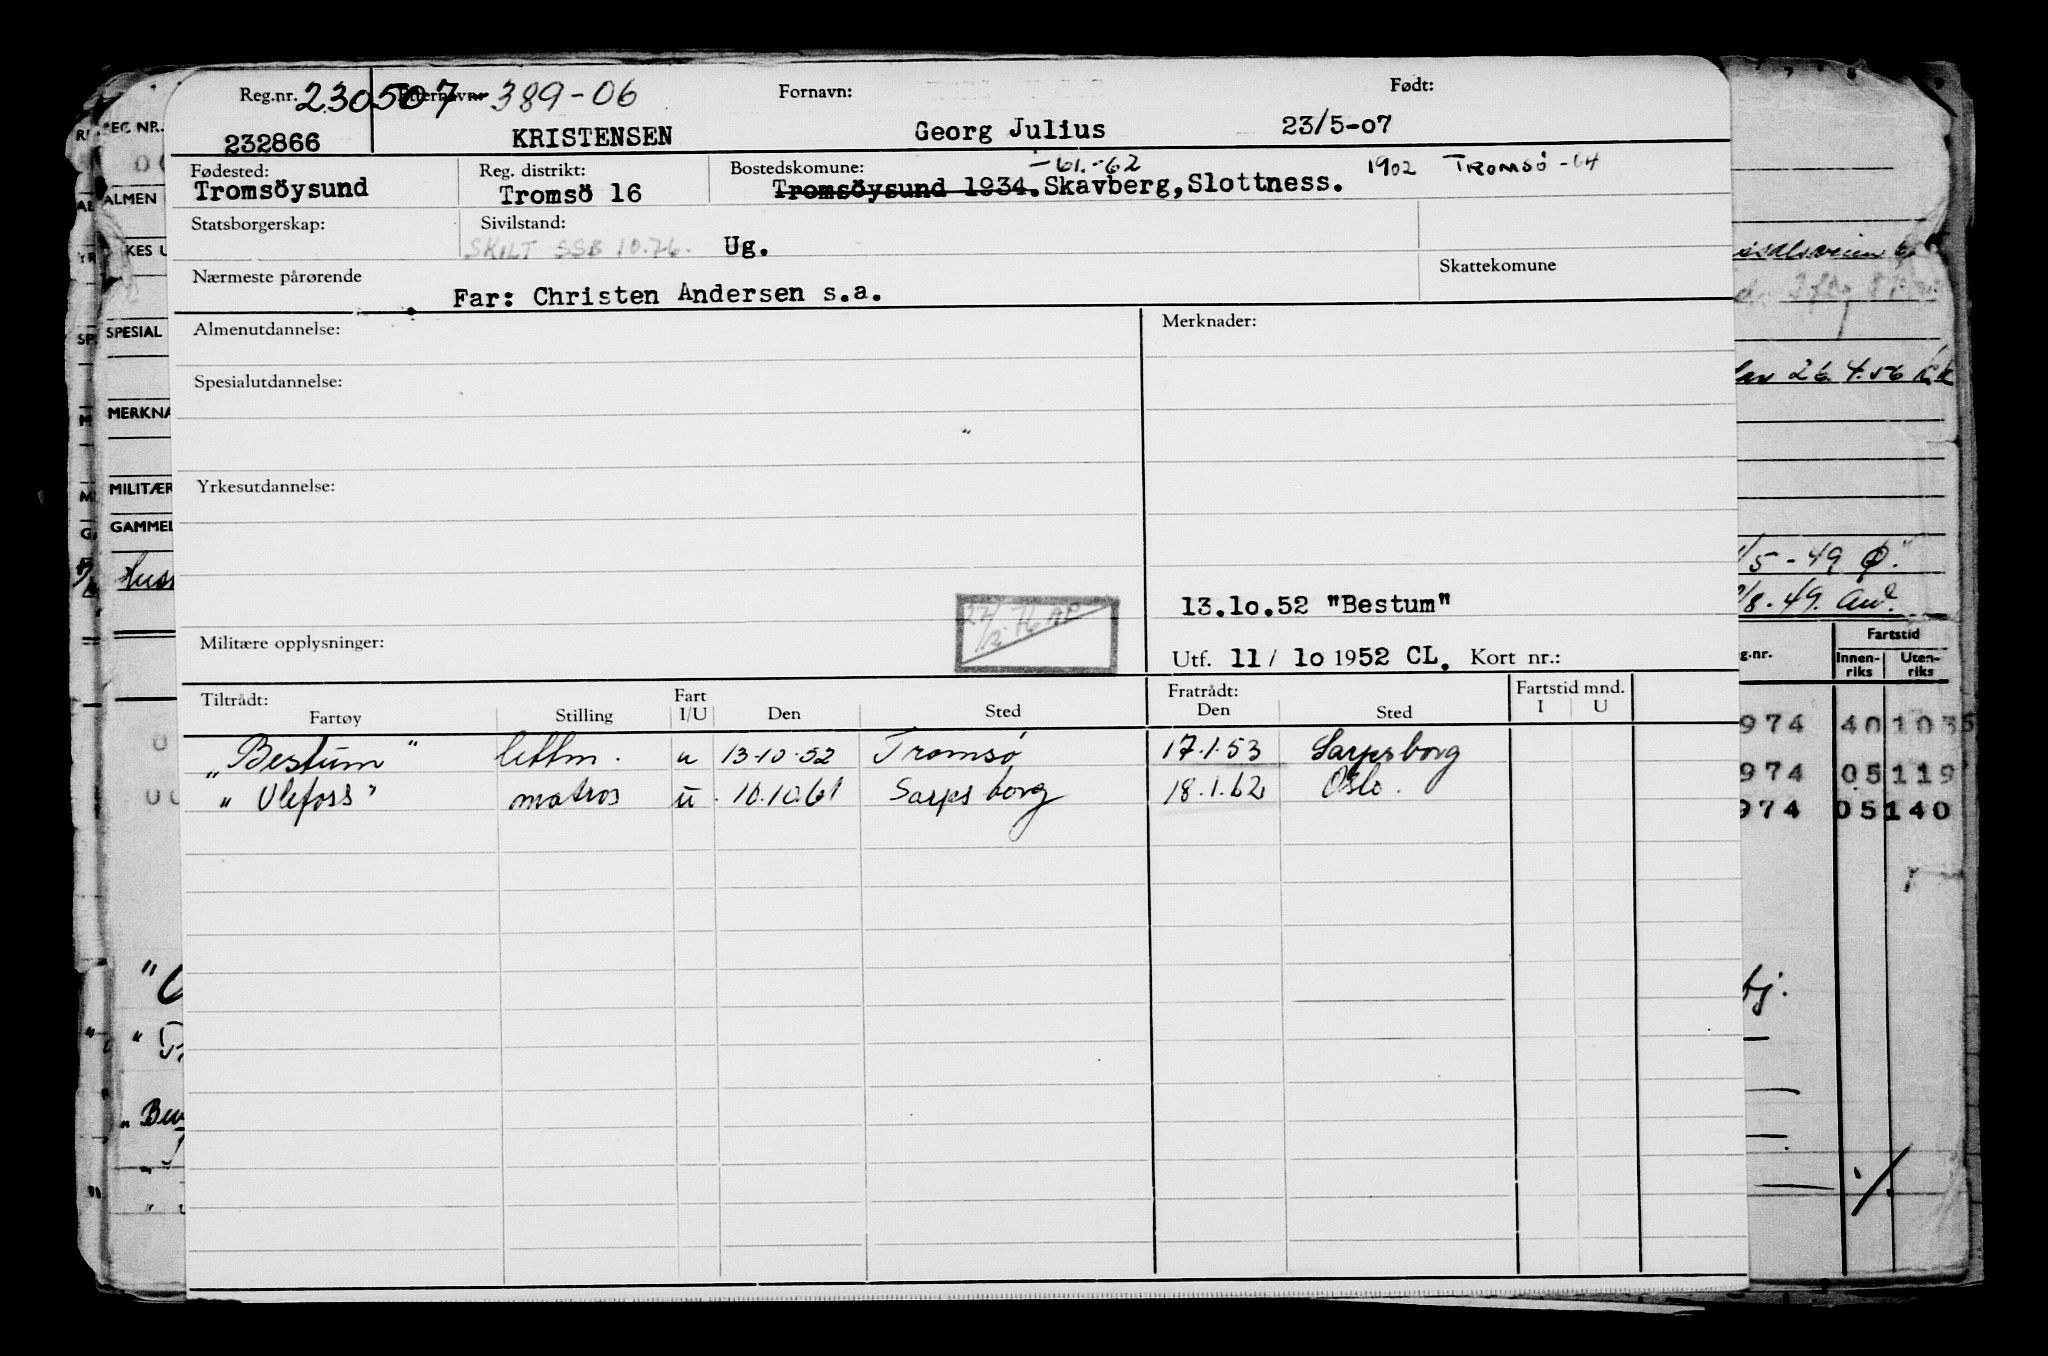 Reg.nr. 230507 Etternavn: 389-06 Fornavn: Født:
232866 KRISTENSEN Georg Julius 23/5-07
Fødested: Reg. distrikt: Bostedskomune: -61.-62 1902 TROMSÖ -64
Tromsöysund Tromsö 16 Tromsöysund 1934. Skavberg, Slottness.
Statsborgerskap: Sivilstand:
SKILT SSB 10.76. Ug.
Nærmeste pårørende Skattekomune
Far: Christen Andersen s.a.
Almenutdannelse: Merknader:
Spesialutdannelse:
Yrkesutdannelse:
27/12-76 AP
13.lo.52 "Bestum"
Militære opplysninger: Utf. 11/ lo 1952 CL. Kort nr.:
Tiltrådt: Fart Fratrådt: Fartstid mnd.
Fartøy Stilling I/U Den Sted Den Sted I U
"Bestum" lettm. u 13-10-52 Tromsø 17.1.53 Sarpsborg
"Ulefoss" matros u. 10.10.61 Sarpsborg 18.1.62 Oslo.
REG NR.
ALMEN
KES U
SPESIAL
MERKNA
MILITÆR
GAMMEL
26.4.56
/5-49
/8.49.
g.nr. Fartstid
Innen-riks Uten-riks
974 40 1035
974 05 119
974 05 140